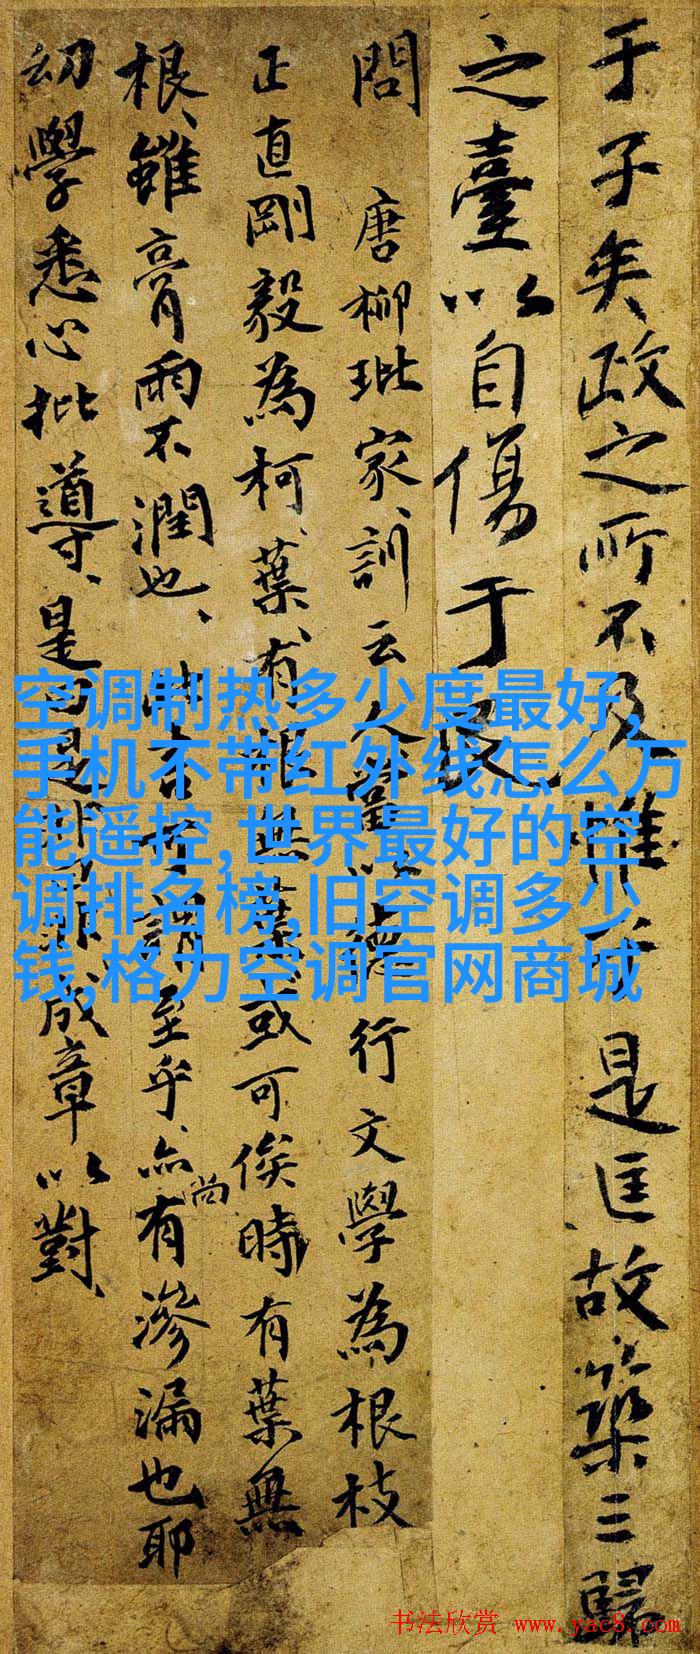 于子矣政之所不及惟
是匡故築三歸
之臺以自傷于
問 唐柳玭家訓云
行文學為根枝
正直剛毅為柯葉有
無
或可俟時有葉無
根雖膏雨不潤也
至乎亦尚有滲漏也耶
幼學悉心批導是
成章以對
空调制热多少度最好,
手机不带红外线怎么万
能遥控,世界最好的空
调排名榜,旧空调多少
钱,格力空调官网商城
书法欣赏 www.yac8.com